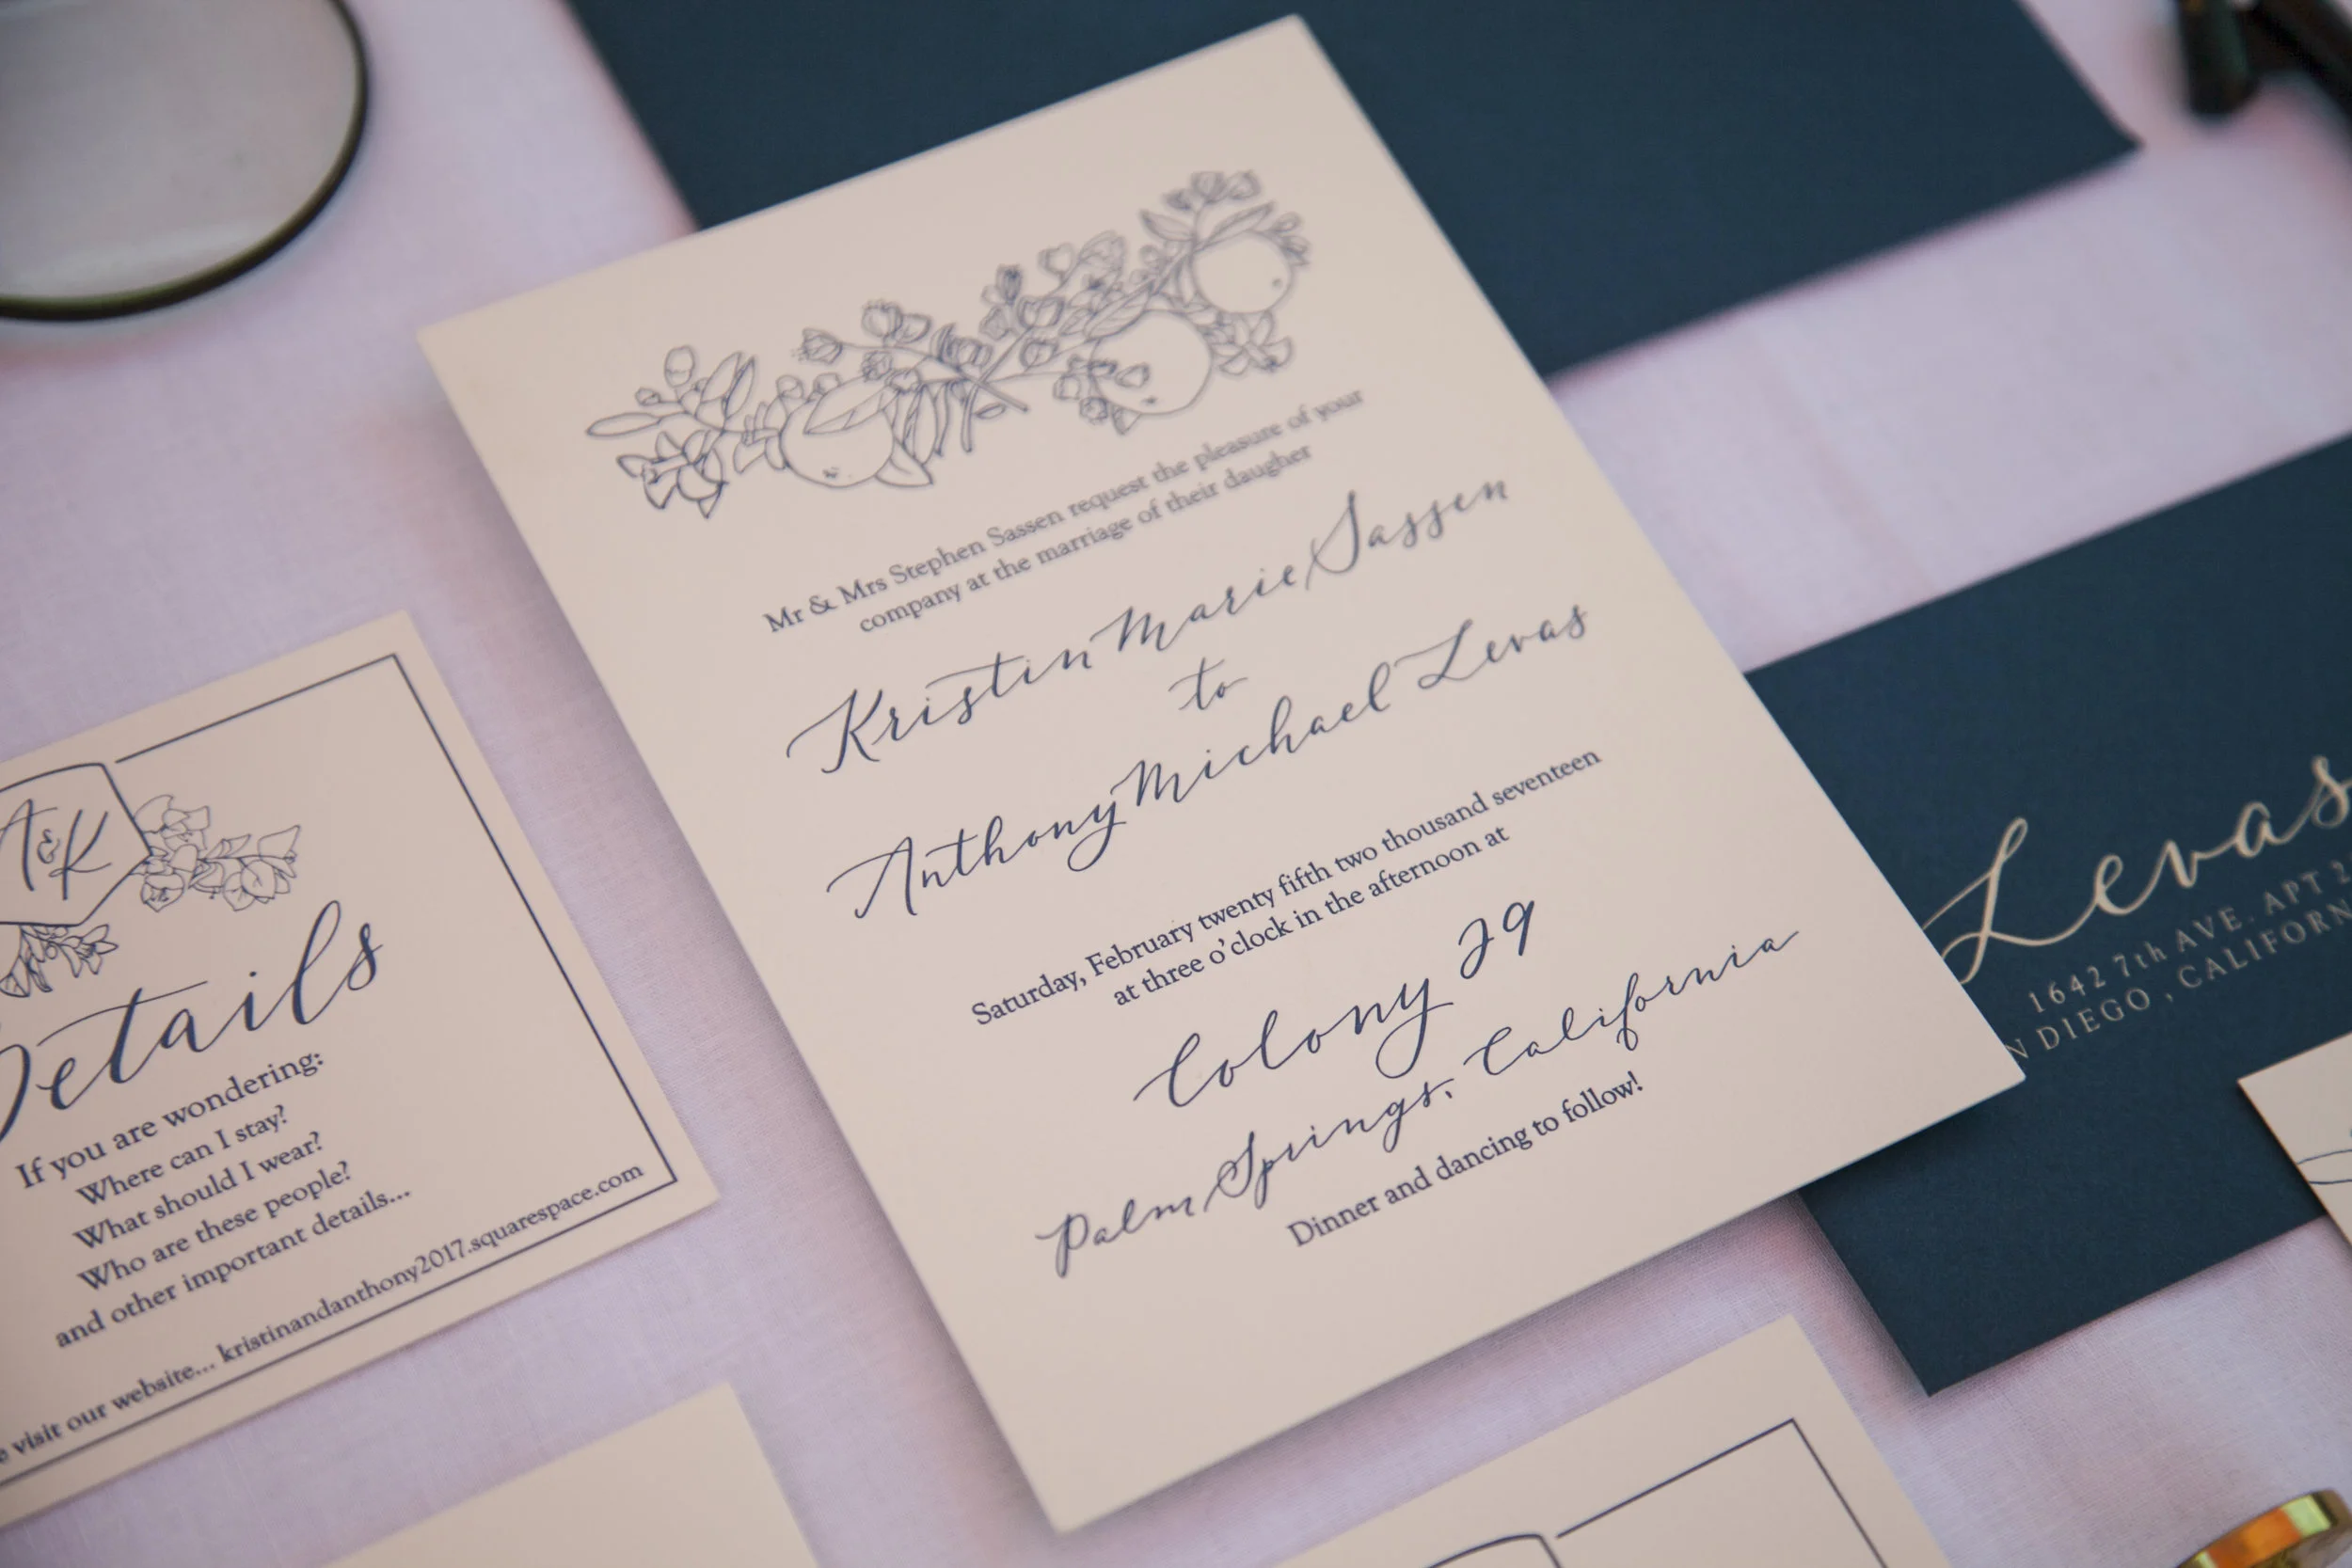 Mr & Mrs Stephen Sassen request the pleasure of your
company at the marriage of their daugher
Kristin Marie Sassen
to
Anthony Michael Levas
Saturday, February twenty fifth two thousand seventeen
at three o'clock in the afternoon at
Colony 29
Palm Springs, California
Dinner and dancing to follow!
A&K
Details
If you are wondering:
Where can I stay?
What should I wear?
Who are these people?
and other important details...
visit our website... kristinandanthony2017.squarespace.com
Levas
1642 7th AVE. APT 2
DIEGO, CALIFORN